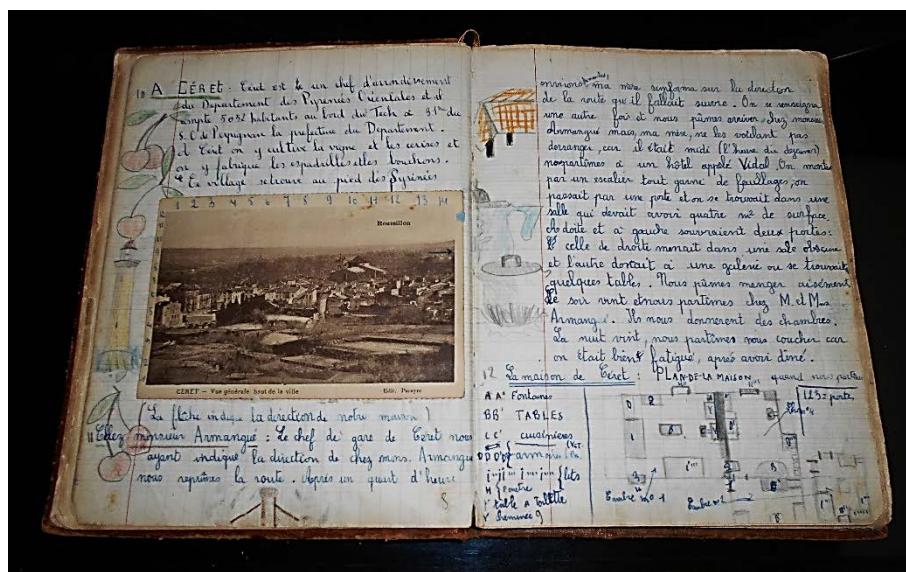 10 A CÉRET : Céret est le un chef d'arrondissement
du Departement des Pyrenées Orientales et il
compte 5032 habitants au bord du Tech à 31 km du
S.O. de Perpignan la préfecture du Departement.
A Céret on y cultive la vigne et les cerises et
on y fabrique les espadrilles et les bouchons.
Ce village se trouve au pied des Pyrénées
1 2 3 4 5 6 7 8 9 10 11 12 13 14
Roussillon
CÉRET — Vue générale haut de la ville
Edit. Parayre
(La flèche indique la direction de notre maison)
11 Chez monsieur Armangué : Le chef de gare de Céret nous
ayant indiqué la direction de chez mons. Armangué
nous reprîmes la route. Après un quart d'heure
8
environ ma mère s'informa sur la direction
de la route qu'il fallait suivre. On se renseigna
une autre fois et nous pûmes arriver chez monsieur
Armangué mais, ma mère, ne les voulant pas
deranger, car il était midi (l'heure du dejeuner)
nous partimes à un hôtel appelé Vidal. On monta
par un escalier tout garni de feuillages, on
passait par une porte et on se trouvait dans une
salle qui devait avoir quatre m² de surface.
A droite et à gauche s'ouvraient deux portes:
celle de droite menait dans une sale obscure
et l'autre donait à une galerie ou se trouvait
quelques tables. Nous pûmes manger aisément
Le soir vint et nous partîmes chez M. et Mme
Armangué. Ils nous donnerent des chambres.
La nuit vint, nous partîmes nous coucher car
on était bien fatigué, aprés avoir dîné.
12 La maison de Céret : PLAN-DE-LA MAISON quand nous
A A' Fontaines
BB' TABLES
CC' cuisinières
armoires
lits
H
table a toilette
cheminée
1 2 3 = portes